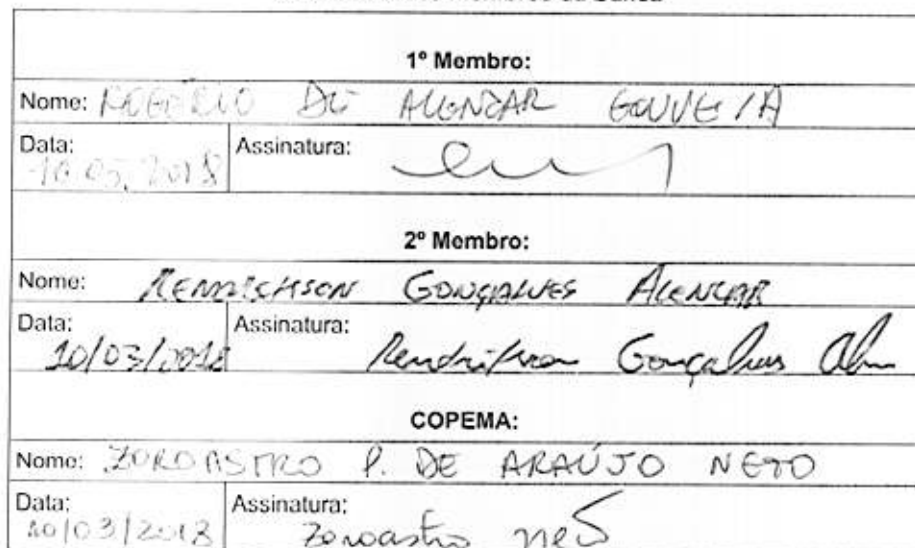 1º Membro:
Nome: ROGÉRIO DE ALENCAR GOUVEIA
Data: 10.03.2018 Assinatura:
2º Membro:
Nome: GONÇALVES ALENCAR
Data: 10/03/2018 Assinatura: Gonçalves
COPEMA:
Nome: ZOROASTRO P. DE ARAÚJO NETO
Data: 10/03/2018 Assinatura: Zoroastro Neto